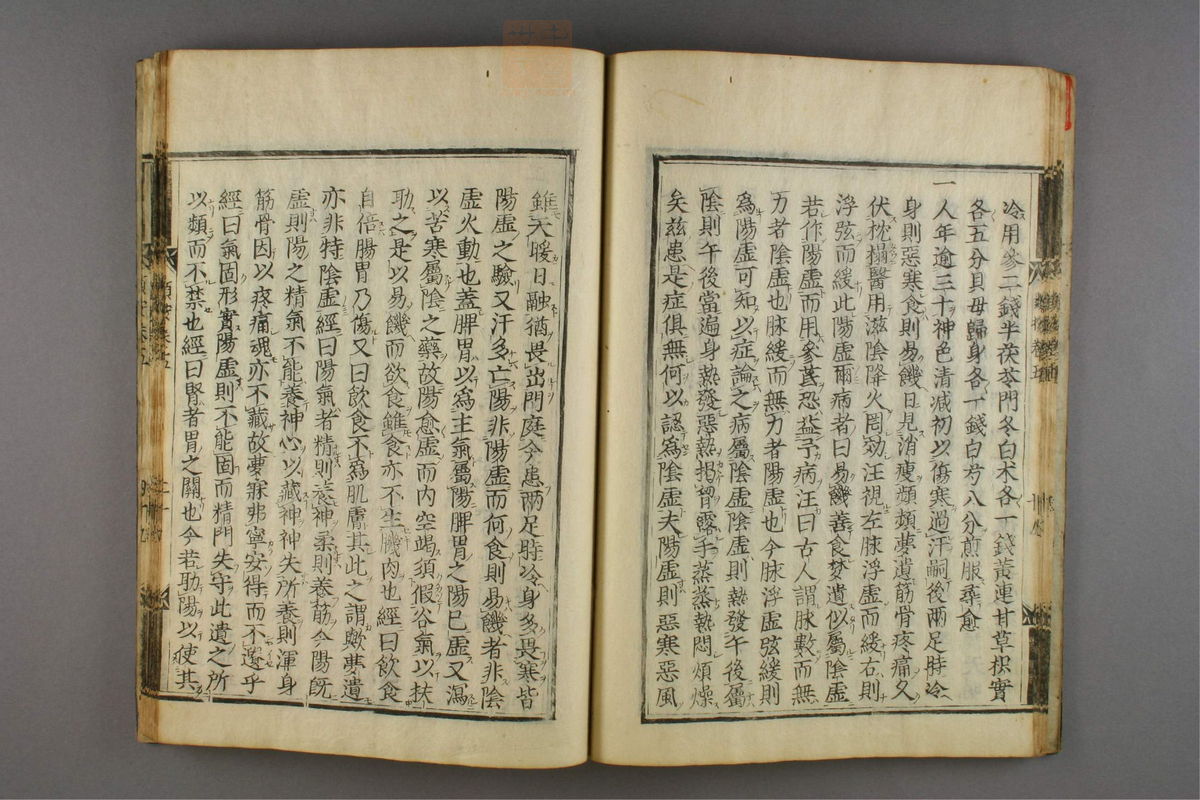 冷用參二錢半茯苓門冬白朮各一錢黃連甘草枳實
各五分貝母歸身各一錢白芍八分煎服尋愈
一人年逾三十神色清減初以傷寒過汗嗣後兩足時冷
身則惡寒食則易饑日見消瘦頻頻夢遺筋骨疼痛久
伏枕榻醫用滋陰降火罔効汪視左脉浮虛而緩右則
浮弦而緩此陽虛爾病者曰易饑善食夢遺似屬陰虛
若作陽虛而用參芪恐益予病汪曰古人謂脉數而無
力者陰虛也脉緩而無力者陽虛也今脉浮虛弦緩則
爲陽虛可知以症論之病屬陰虛陰虛則熱發午後屬
陰則午後當遍身熱發惡熱揭胷露手蒸蒸熱悶煩燥
矣茲患是症俱無何以認爲陰虛夫陽虛則惡寒惡風
雖天暖日融猶畏出門庭今患兩足時冷身多畏寒皆
陽虛之驗又汗多亡陽非陽虛而何食則易饑者非陰
虛火動也蓋脾胃以爲主氣屬陽脾胃之陽已虛又瀉
以苦寒屬陰之藥故陽愈虛而內空竭須假谷氣以扶
助之是以易饑而欲食雖食亦不生肌肉也經曰飲食
自倍腸胃乃傷又曰飲食不爲肌膚其此之謂歟夢遺
亦非特陰虛經曰陽氣者精則養神柔則養筋今陽旣
虛則陽之精氣不能養神心以藏神神失所養則渾身
筋骨因以疼痛魂亦不藏故夢寐弗寧安得而不遺乎
經曰氣固形實陽虛則不能固而精門失守此遺之所
以頻而不禁也經曰腎者胃之關也今若助陽以使其